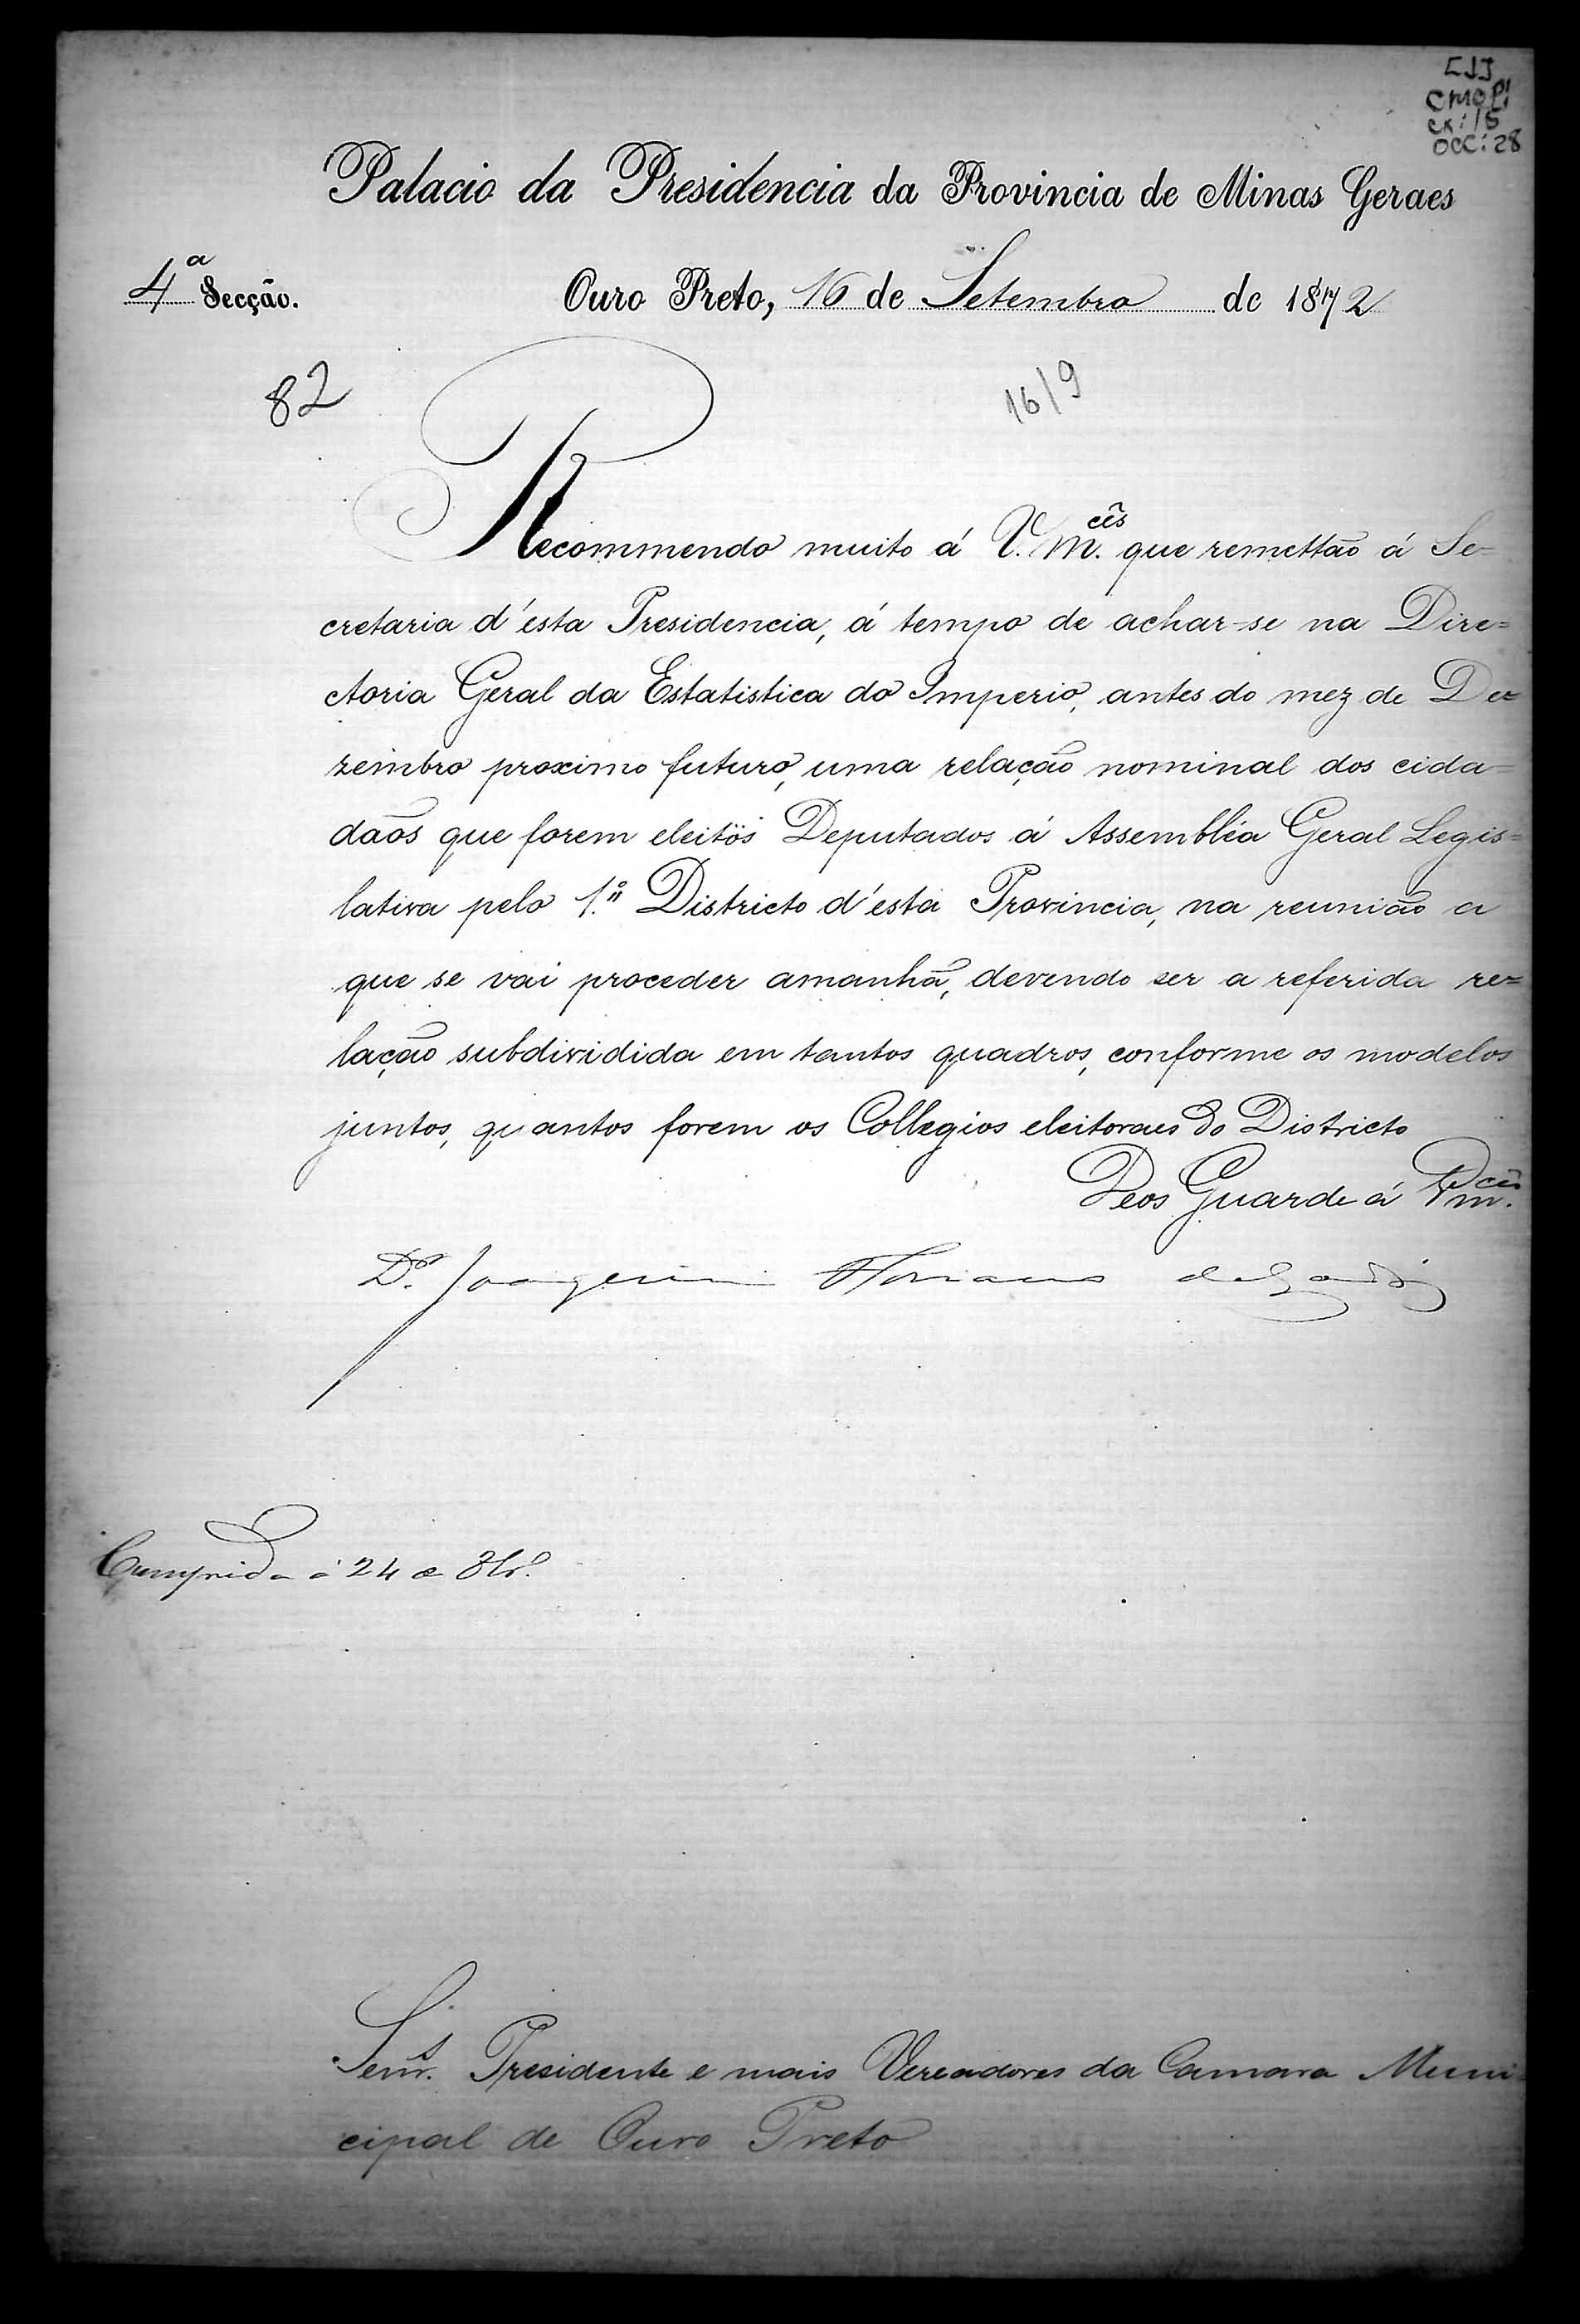 CJJ
CMOP!
CX: 15
DOC: 28
Palacio da Presidencia da Provincia de Minas Geraes
4ª Secção.
Ouro Preto, 16 de Setembro de 1872
82
16/9
Recommendo muito á V. M.cês que remettão á Se=
cretaria d'esta Presidencia, á tempo de achar-se na Dire=
ctoria Geral da Estatistica do Imperio, antes do mez de De=
zembro proximo futuro, uma relação nominal dos cida=
dãos que forem eleitos Deputados á Assembléa Geral Legis=
lativa pelo 1.º Districto d'esta Provincia, na reunião a
que se vai proceder amanhã, devendo ser a referida re=
lação subdividida em tantos quadros, conforme os modelos
juntos, quantos forem os Collegios eleitoraes do Districto
Deos Guarde á Vm.cês
Dr. Joaquim Floriano de Godoy
Cumprida á 24 de
Senrs. Presidente e mais Vereadores da Camara Muni=
cipal de Ouro Preto